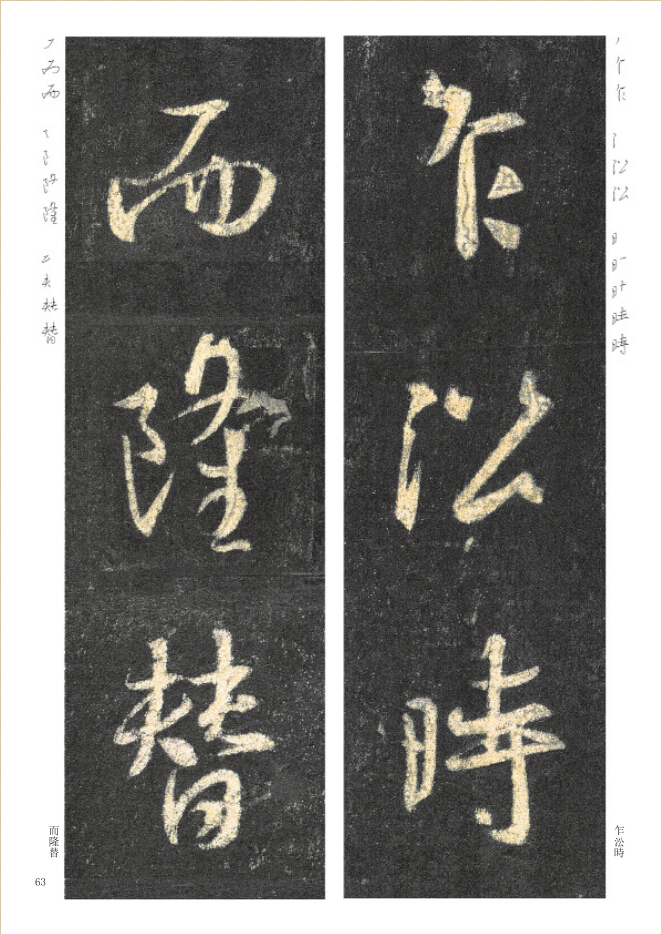 乍㳂時
而隆替
乍㳂時
而隆替
63